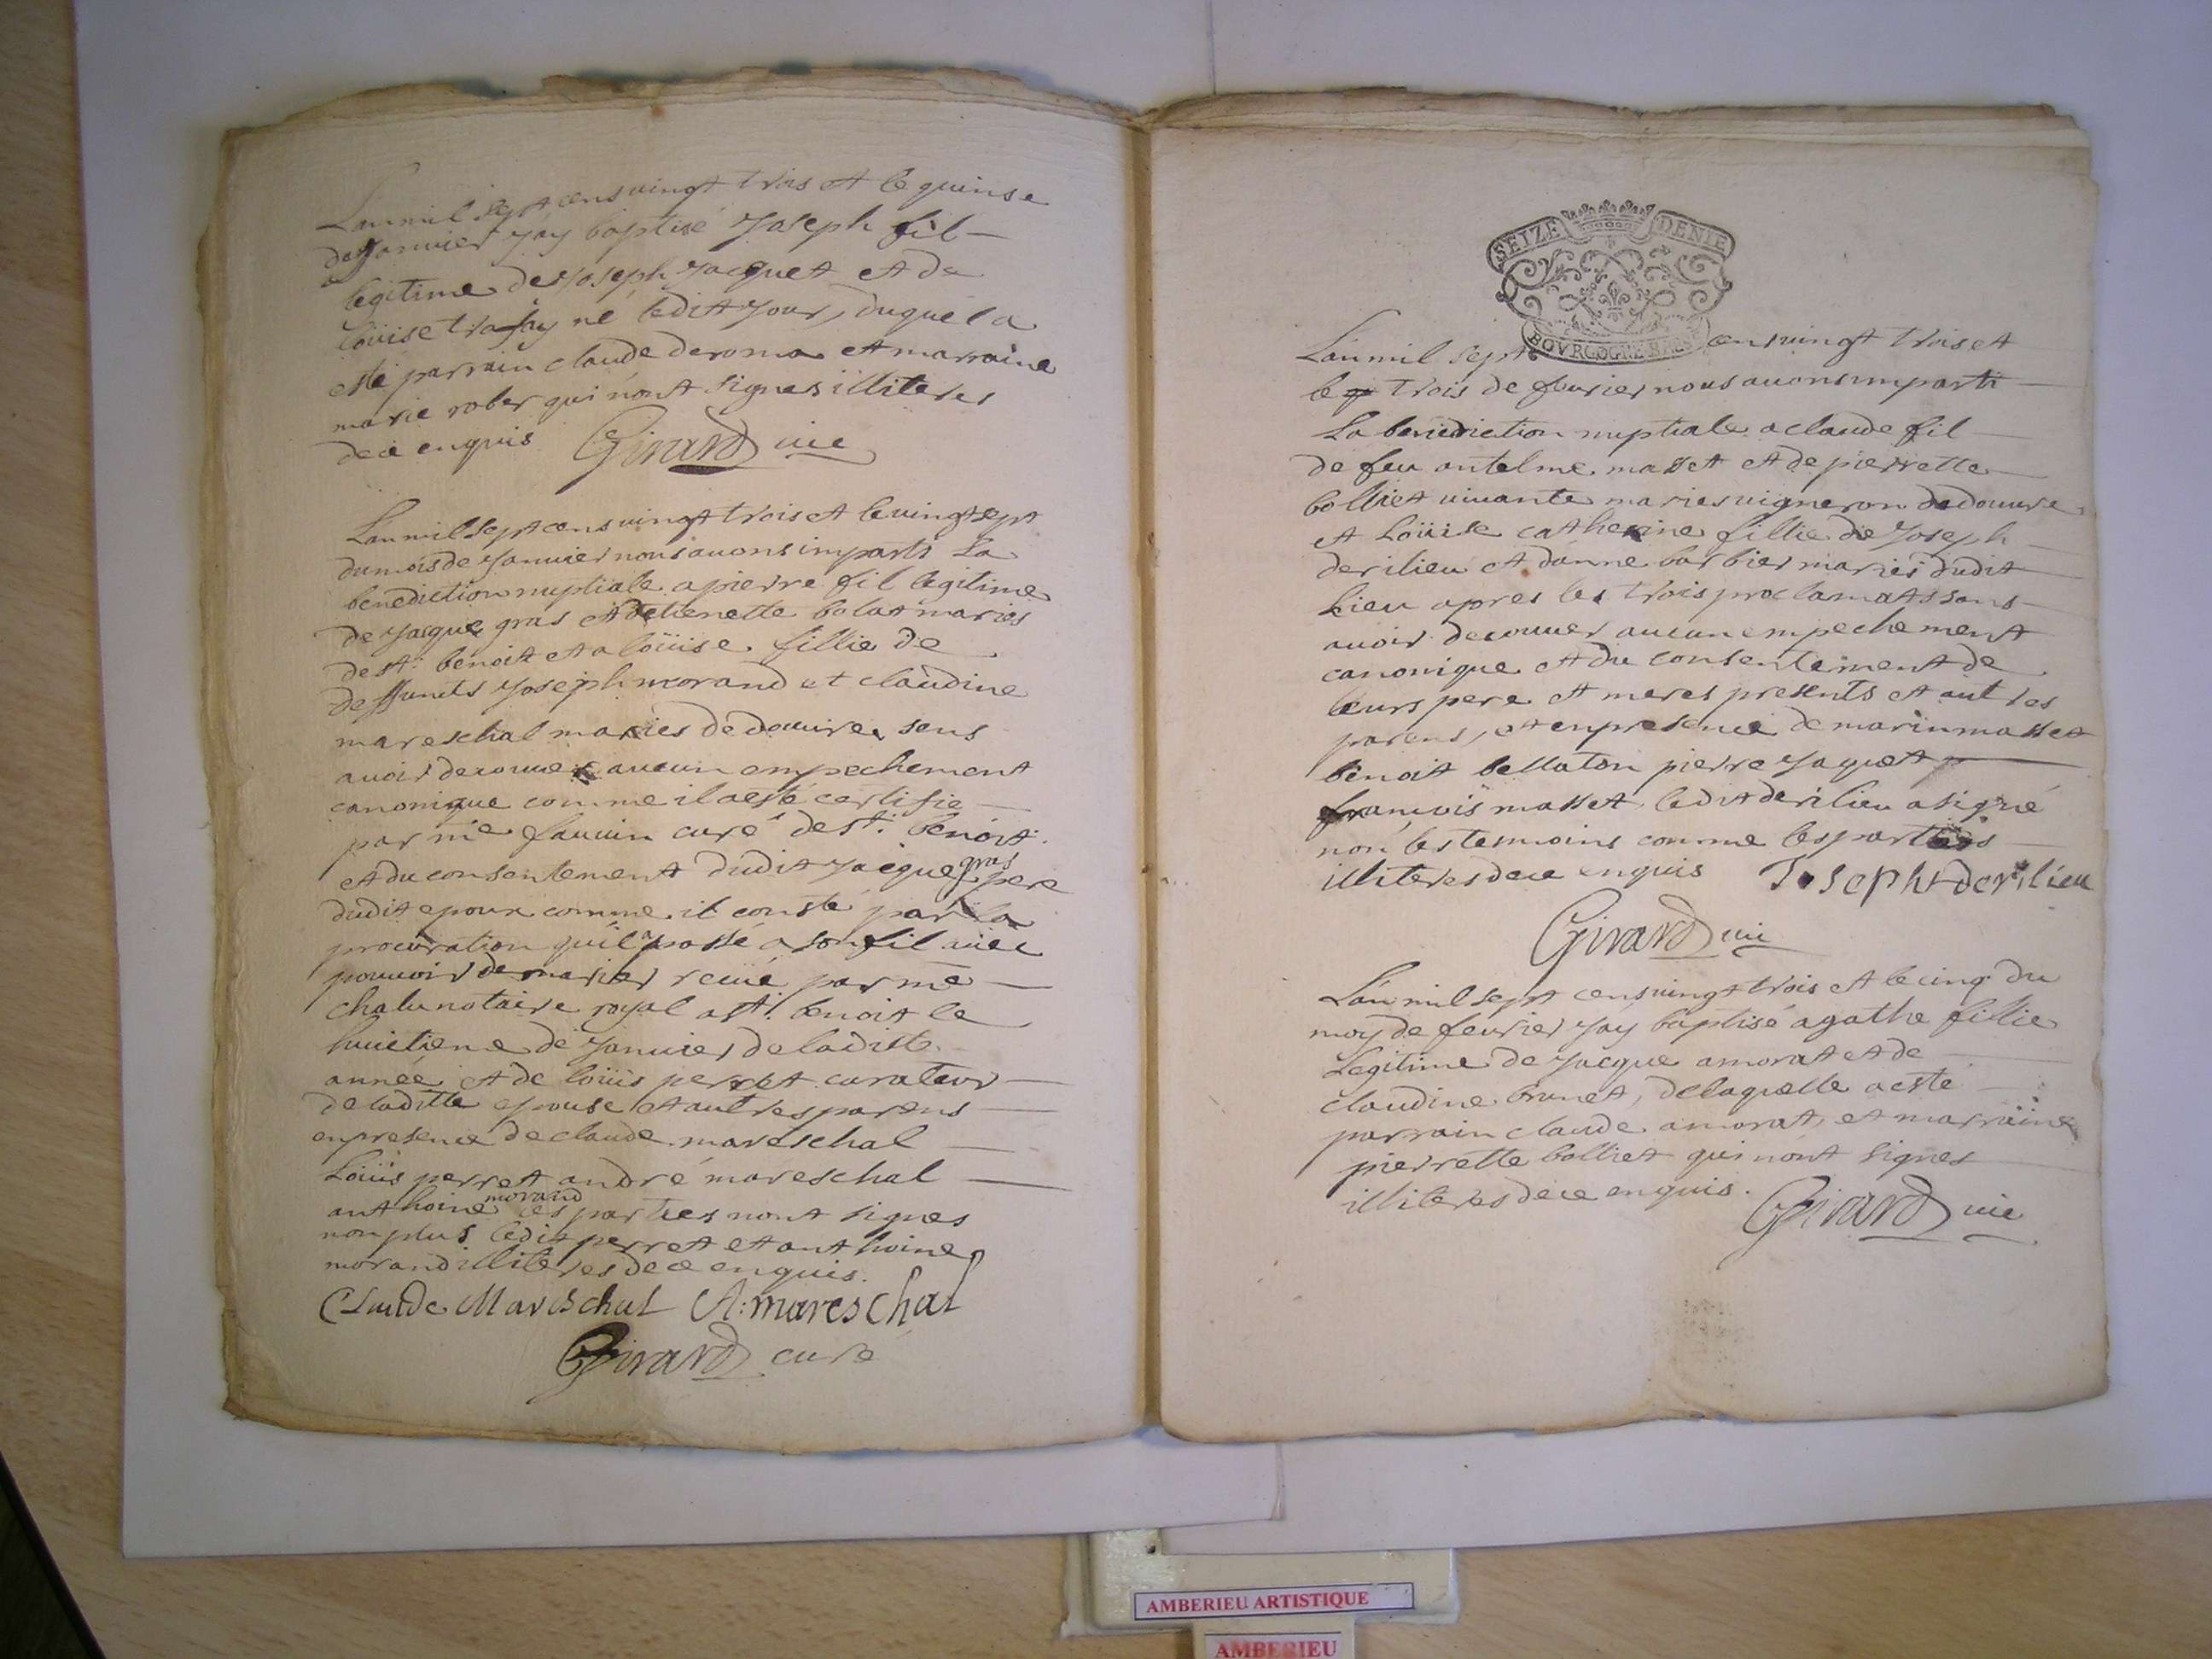 Lan mil sept cens vingt trois et le quinse
de Janvier Jay baptisé Joseph fil
legitime de Joseph Jacquet et de
loüise trafay né ledit Jour, duquel a
esté parrain claude deroma et marraine
marie rober qui nont signes illiteres
de ce enquis Girard vic
Lan mil sept cens vingt trois et le vingt sept
du mois de Janvier nous avons imparti La
benediction nuptiale a pierre fil legitime
de Jacque gras et detienette bolat maries
de st: benoit et a loüise fillie de
deffunts Joseph morand et claudine
mareschal maries de douvre, sens
avoir decouver aucun empechement
canonique comme il a esté certifie
par me fauvin curé de st: benoit
et du consentement dudit Jacque gras pere
dudit epoux comme il conste par la
procuration quil a passé a son fil avec
pouvoir de marier receüe par me
chalu notaire royal a st: benoit le
huictieme de Janvier de ladite
année et de loüis perret curateur
de laditte epouse et autres parens
en presence de claude mareschal
Loüis perret andré mareschal
anthoine morand les parties nont signes
non plus ledit perret et anthoine
morand illiteres de ce enquis.
Claude Mareschal A: mareschal
Girard curé
SEIZE DENIE
BOVRGOGNE BRES
Lan mil sept cen vingt trois et
le trois de fevrier nous avons imparti
La benediction nuptiale a claude fil
de feu antelme masset et de pierrette
bolliet vivante maries vigneron de douvre
et Loüise catherine fillie de Joseph
derilieu et danne barbier maries dudit
Lieu apres les trois proclamats sans
avoir decouver aucun empechement
canonique et du consentement de
leurs pere et meres presents et autres
parens, et en presence de marin masset
benoit bellaton pierre Jaquet
françois masset ledit derilieu a signé
non les tesmoins comme les parties
illiteres de ce enquis Joseph derilieu
Girard vic
Lan mil sept cens vingt trois et le cinq du
moy de fevrier Jay baptisé agathe fillie
Legitime de Jacque amorat et de
claudine brunet, de laquelle a esté
parrain claude amorat, et marraine
pierrette bolliet qui nont signes
illiteres de ce enquis. Girard vic
AMBERIEU ARTISTIQUE
AMBERIEU